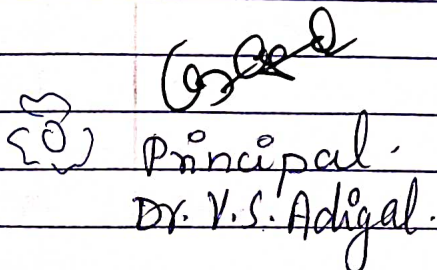 Principal.
Dr. V.S. Adigal.